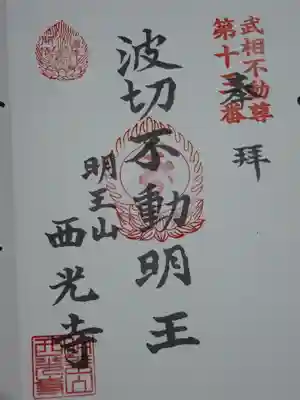 武相不動尊
第十二番
奉拝
波切不動明王
明王山
西光寺